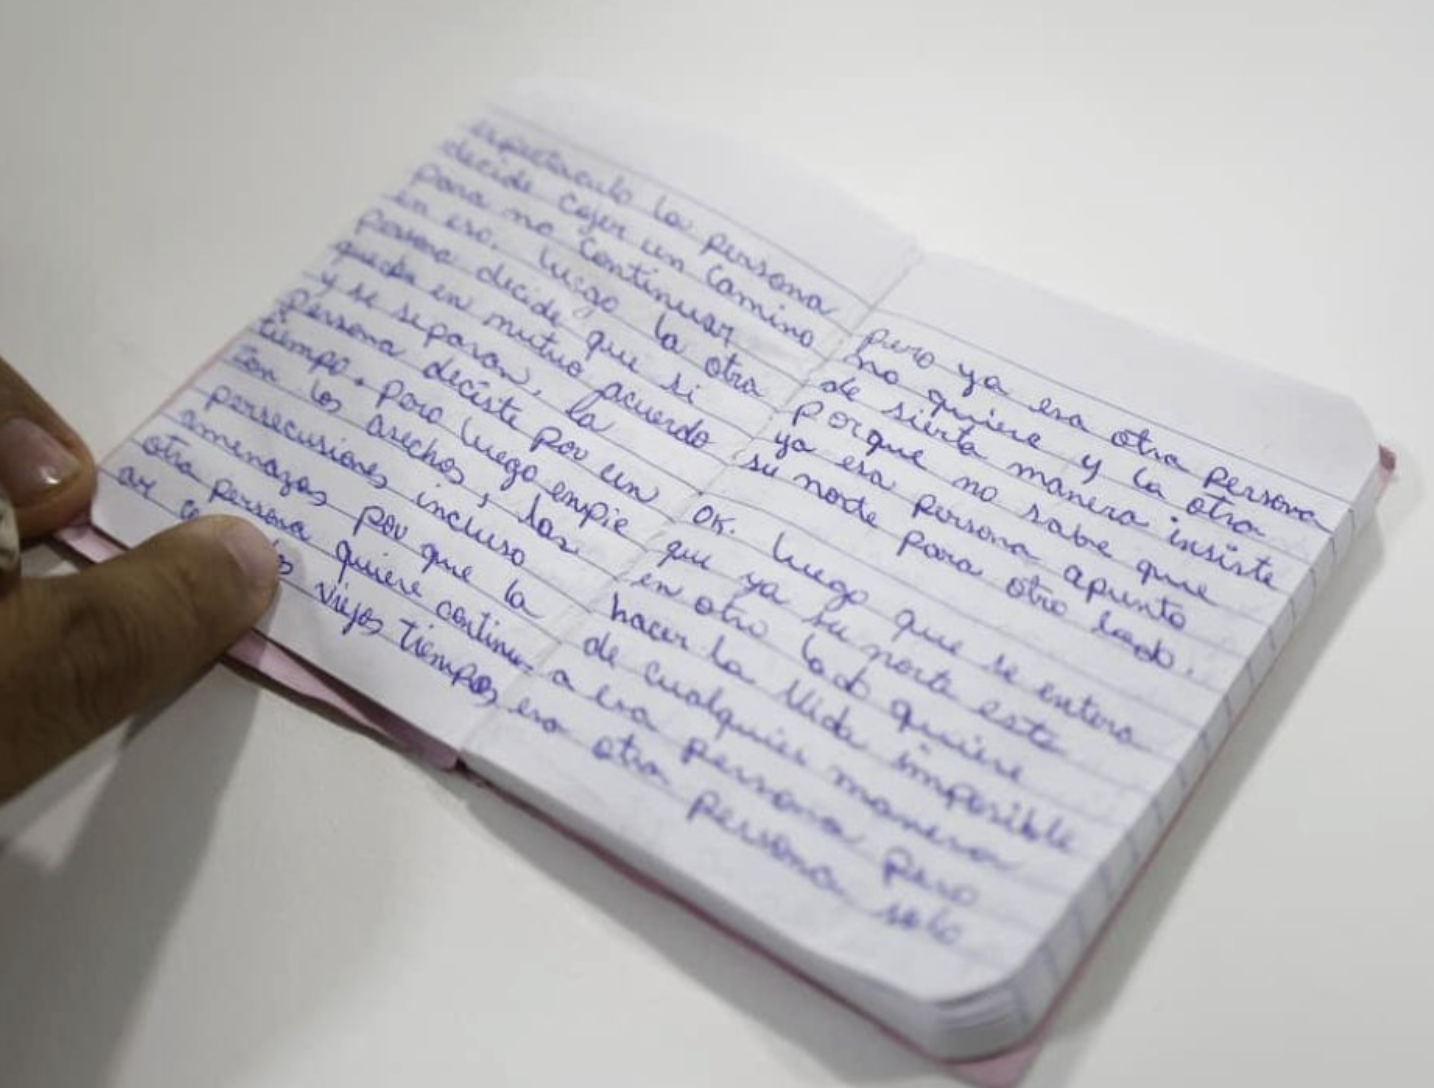 espectaculo la persona
decide cojer un camino
para no continuar
en eso. luego la otra
persona decide que si
queda en mutuo acuerdo
y se separan, la
persona deciste por un
tiempo. pero luego empie
zan los asechos, las
persecusiones incluso
amenazas por que la
otra persona quiere continu-
ar co viejos tiempos
pero ya esa otra persona
no quiere y la otra
de sierta manera insiste
porque no sabe que
ya esa persona apunto
su norte para otro lado.
OK. luego que se entera
que ya su norte esta
en otro lado quiere
hacer la vida imposible
de cualquier manera
a esa persona pero
esa otra persona solo